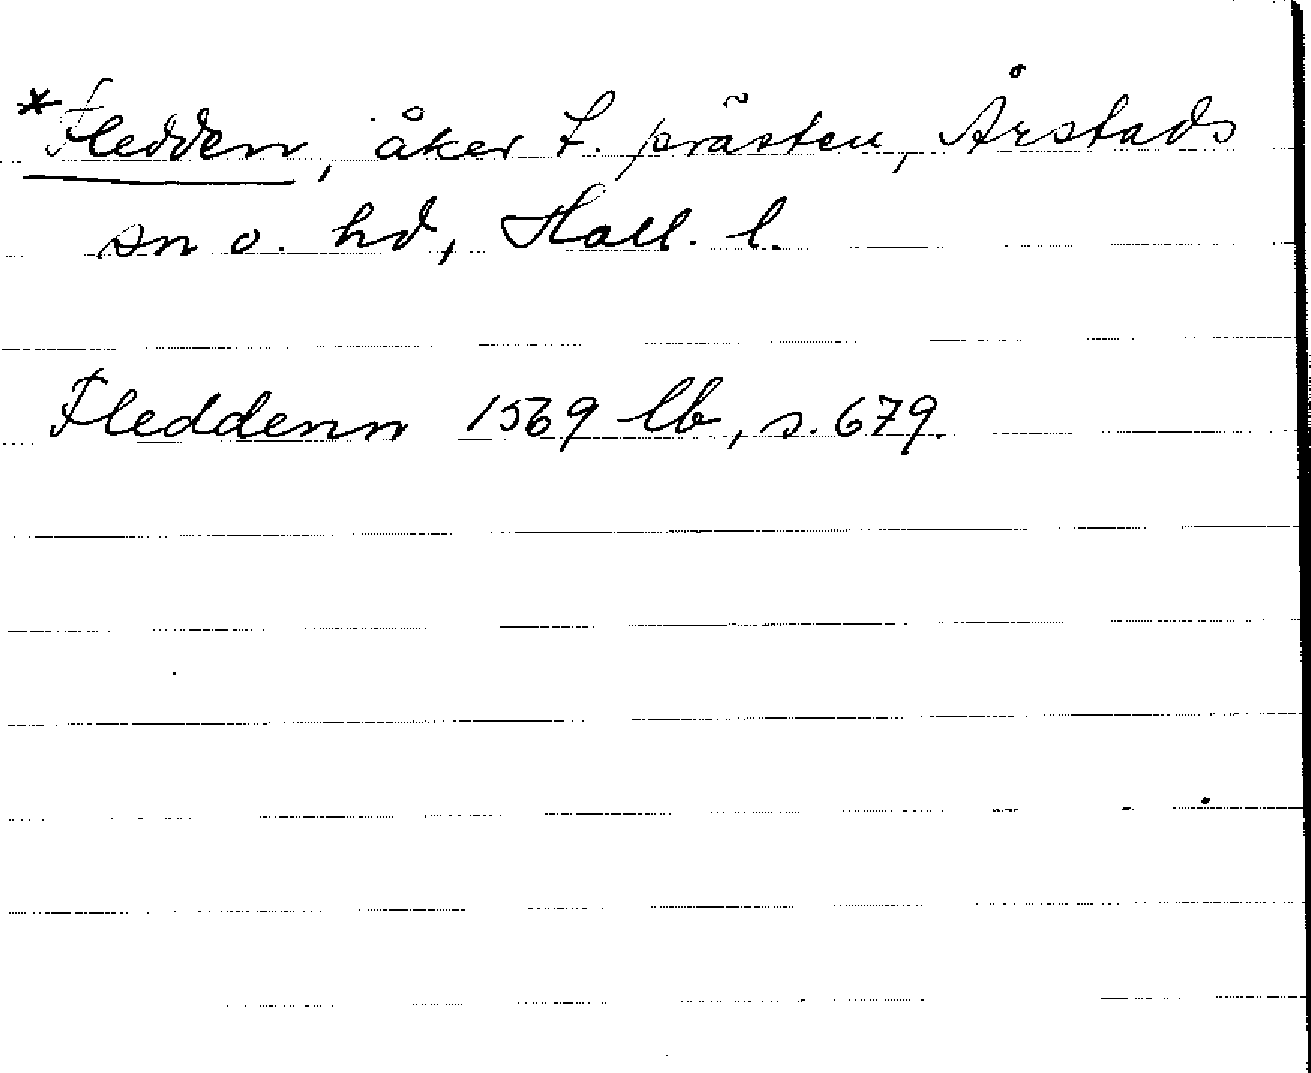 *Fledden, åker t. prästen, Årstads
sn o. hd, Hall. l.
Fleddenn 1569 lb, s. 679.